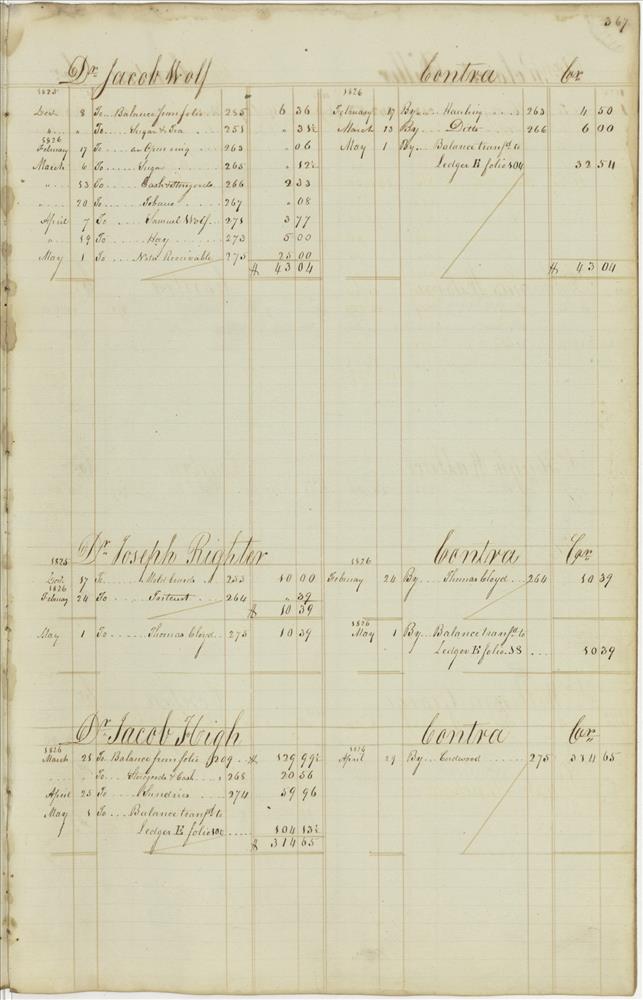 367
Dr Jacob Wolf Contra Cr
1825 1826
Dec. 8 To Balance from folio 235 6 36 February 17 By Hauling 263 4 50
" " To Sugar & Tea 251 " 31½ March 13 By Ditto 266 6 00
1826
February 17 To 263 " 06 May 1 By Balance transfd to
March 6 To Sugar 265 " 12½ Ledger E folio 104 32 54
" 13 To Cash & Storegoods 266 2 33
" 20 To Tobacco 267 " 08
April 7 To Samuel Wolf 271 3 77
" 19 To Hay 273 5 00
May 1 To Note Receivable 275 25 00
$ 43 04 $ 43 04
Dr Joseph Righter Contra Cr
1825 1826
Dec. 17 To 253 10 00 February 24 By Thomas Cloyd 264 10 39
1826
February 24 To Interest 264 " 39
$ 10 39
1826
May 1 To Thomas Cloyd 275 10 39 May 1 By Balance transfd to
Ledger E folio 38 10 39
Dr Jacob High Contra Cr
1826 1826
March 28 To Balance from folio 209 $ 129 99½ April 29 By Cordwood 275 314 65
" " To Storegoods & Cash 268 20 56
April 25 To Sundries 274 59 96
May 1 To Balance transfd to
Ledger E folio 104 13½
$ 314 65